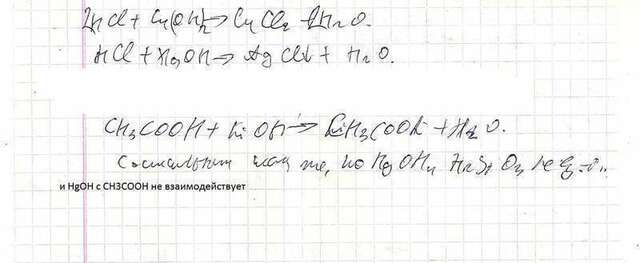 2HCl + Cu(OH)2 → CuCl2 + 2H2O.
HCl + HgOH → AgCl↓ + H2O.
CH3COOH + LiOH → LiH3COOH + H2O.
же, но HgOH и H2 O3 не
и HgOH с CH3COOH не взаимодействует